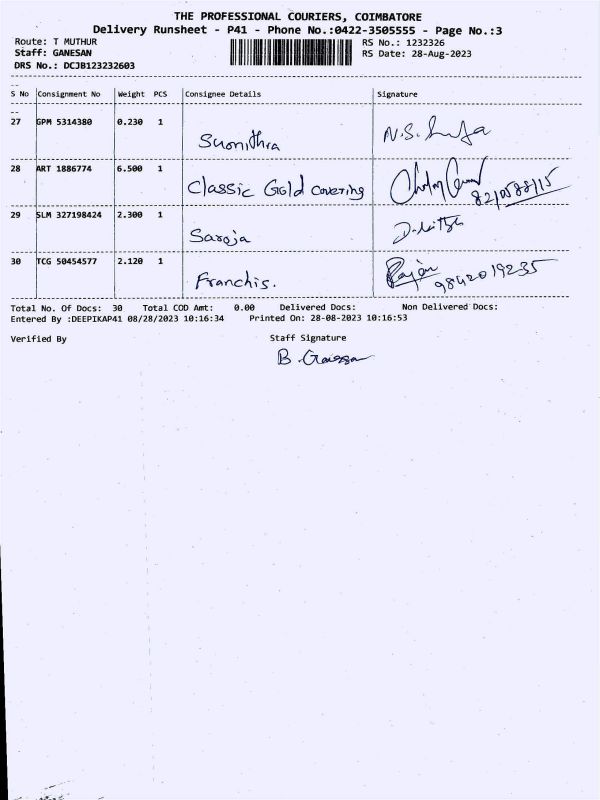 THE PROFESSIONAL COURIERS, COIMBATORE
Delivery Runsheet - P41 - Phone No.:0422-3505555 - Page No.:3
Route: T MUTHUR RS No.: 1232326
Staff: GANESAN RS Date: 28-Aug-2023
DRS No.: DCJB123232603
S No Consignment No Weight PCS Consignee Details Signature
27 GPM 5314380 0.230 1 N.S.
28 ART 1886774 6.500 1 Classic Gold covering
29 SLM 327198424 2.300 1 Saroja
30 TCG 50454577 2.120 1 Franchis. Rajan
9842019235
Total No. Of Docs: 30 Total COD Amt: 0.00 Delivered Docs: Non Delivered Docs:
Entered By :DEEPIKAP41 08/28/2023 10:16:34 Printed On: 28-08-2023 10:16:53
Verified By Staff Signature